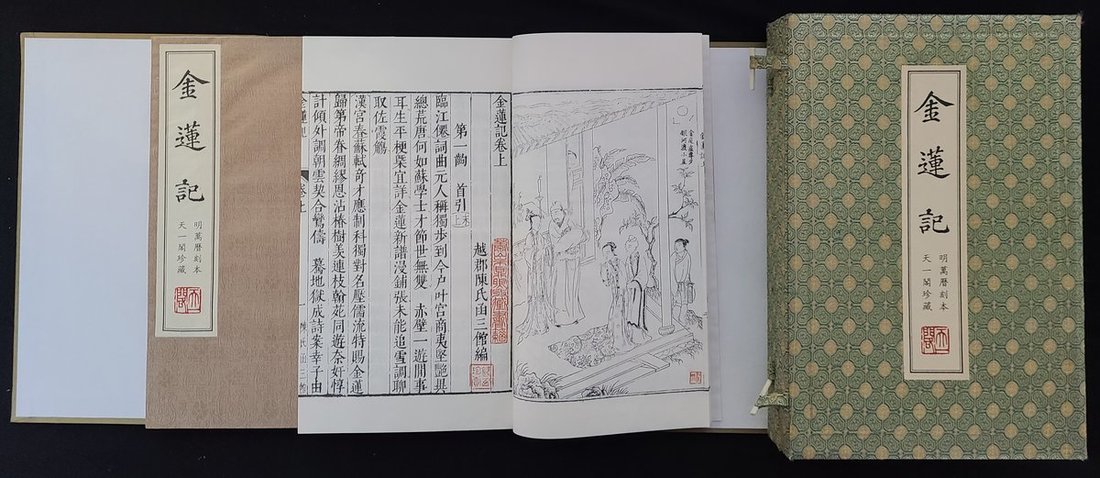 金蓮記
明萬曆刻本
天一閣珍藏
金蓮記卷上
第一齣 首引 末上
越郡陳氏函三館編
臨江僊詞曲元人稱獨步到今户叶宫商夷堅艷異
總荒唐何如蘇學士才節世無雙 赤壁一遊閒事
耳生平梗槩宜詳金蓮新譜浸鋪張未能追雪調聊
取佐霞觴
漢宫春蘇軾奇才應制科獨對名壓儒流特賜金蓮
歸第帝眷綢繆恩沾椿樹美連枝翰苑同遊奈好惇
計傾外調朝雲契合鸞儔 驀地獄成詩案幸子由
金蓮記 卷上 一
金蓮記
明萬曆刻本
天一閣珍藏